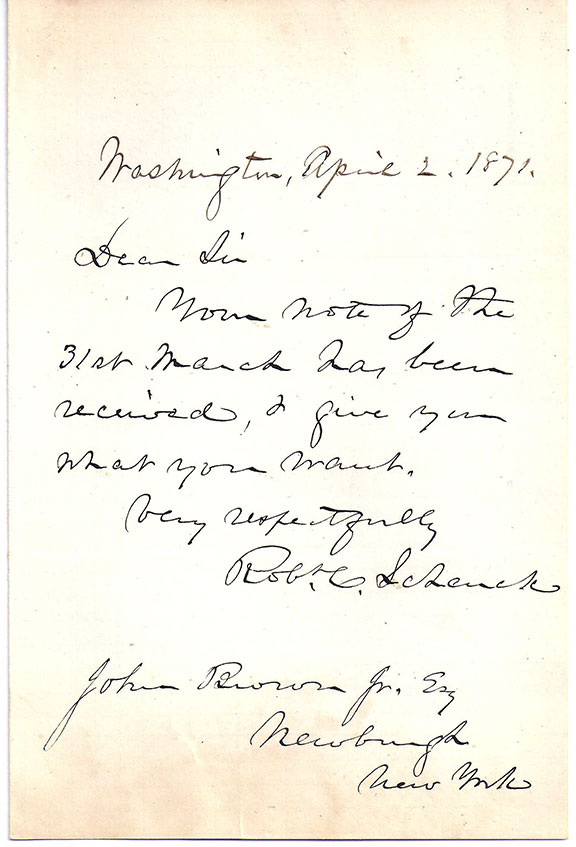 Washington, April 2. 1871.
Dear Sir
Your note of the
31st March has been
received, & I give you
what you want.
Very respectfully
Robt. C. Schenck
John Brown Jr. Esq
Newburgh
New York